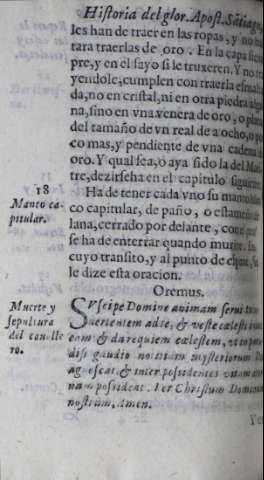 Historia del glor. Apost. Sātiago
les han de traer en las ropas, y no
tara traerlas de oro. En la capa siem
pre, y en el sayo si le truxeren. Y no
yendole, cumplen con traerla
da, no en cristal, ni en otra piedra
na, sino en vna venera de oro, o
del tamaño de vn real de a ocho, o
co mas, y pendiente de vna cadena
oro. Y qual sea, o aya sido la del Mae
tre, dezirseha en el capitulo siguiente
18
Manto ca-
pitular.
Ha de tener cada vno su manto blan
co capitular, de paño, o estameña
lana, cerrado por delante, con
se ha de enterrar quando muere. In
cuyo transito, y al punto de
le dize esta oracion.
Oremus.
Muerte y
sepultura
del cavalle
ro.
SVscipe Domine animam serui tui
uertentem ad te, & veste cælesti
eam & da requiem cælestem, vt
disi gaudio nostrum mysteriorum
agnoscat & inter possidentes vitam
nam possideat. Per Christum Dominum
nostrum, Amen.